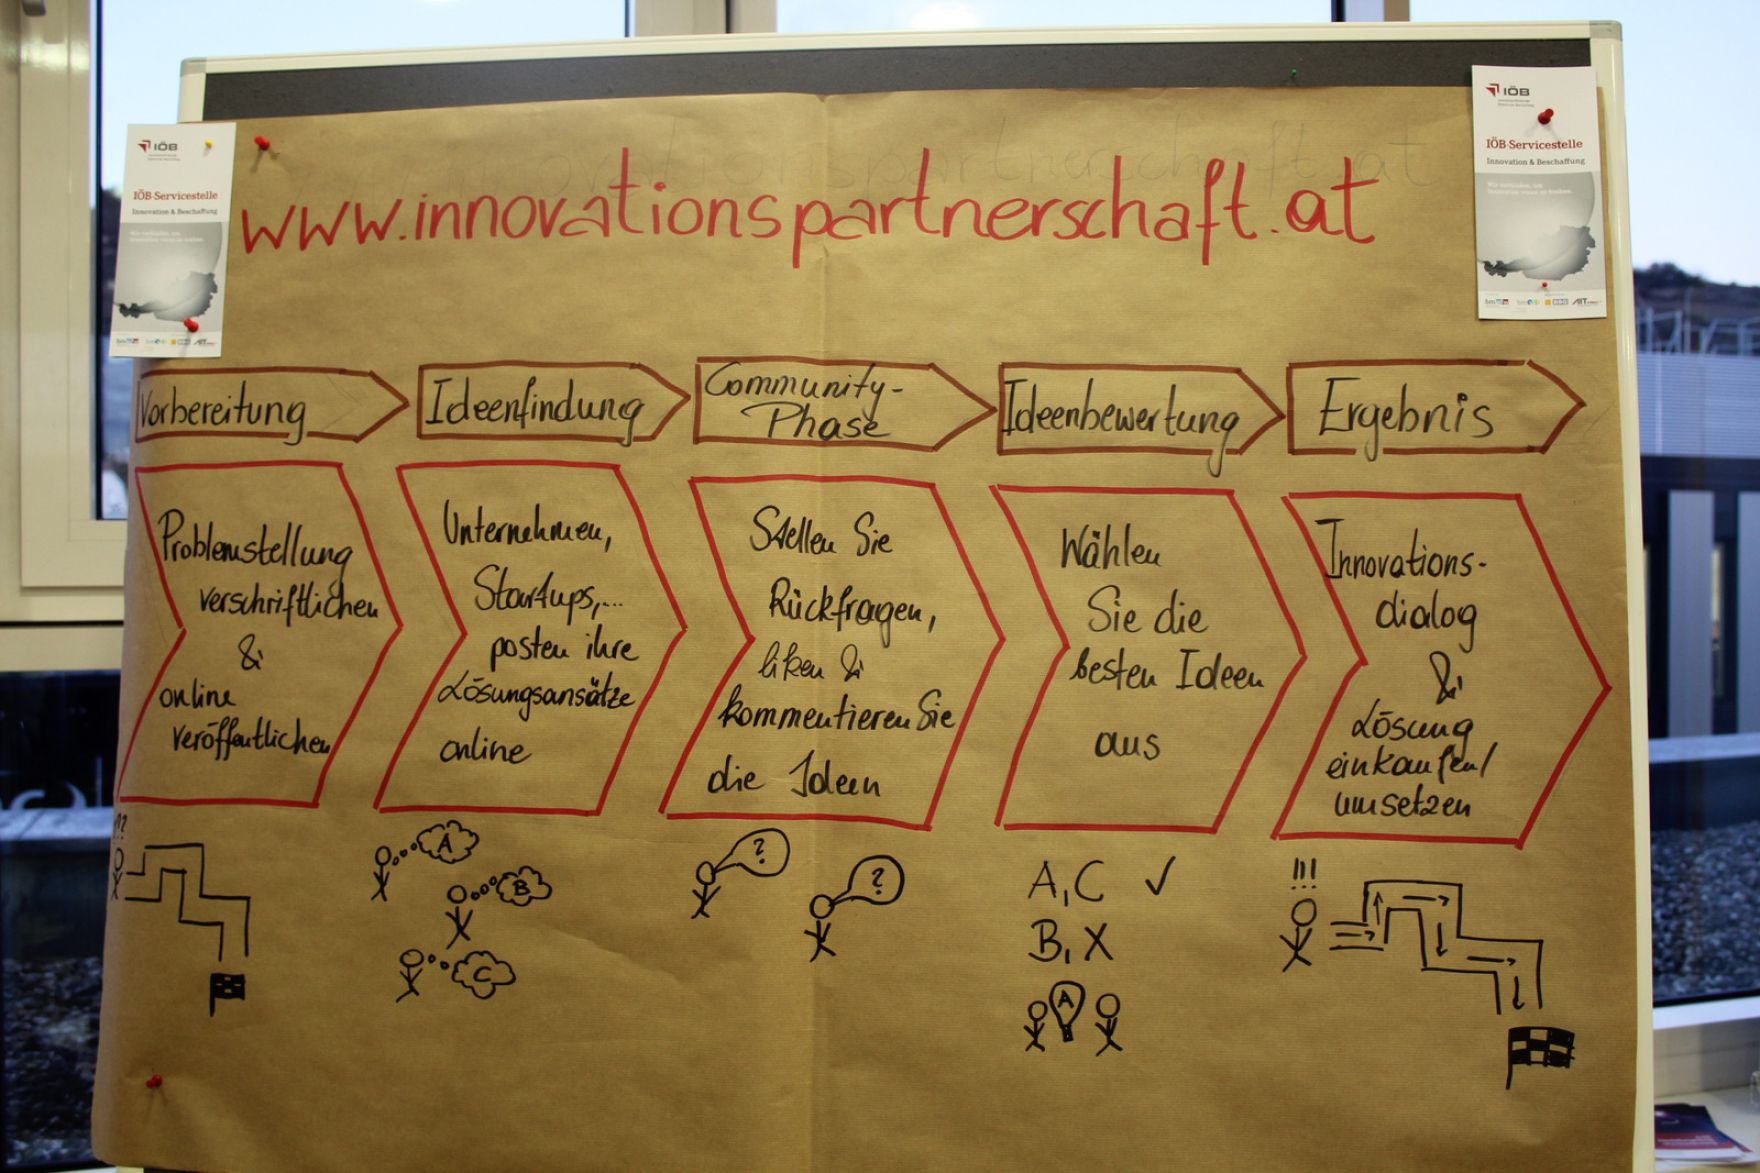 IÖB
IÖB-Servicestelle
Innovation & Beschaffung
Wir verbinden, um
Innovation voran zu treiben.
IÖB
IÖB-Servicestelle
Innovation & Beschaffung
AIT
BBG
AIT
www.innovationspartnerschaft.at
Vorbereitung
Problemstellung
verschriftlichen
&
online
veröffentlichen
Ideenfindung
Unternehmen,
Startups,...
posten ihre
Lösungsansätze
online
A
B
C
Community-
Phase
Stellen Sie
Rückfragen,
liken &
kommentieren Sie
die Ideen
?
?
Ideenbewertung
Wählen
Sie die
besten Ideen
aus
A, C ✓
B, X
A
Ergebnis
Innovations-
dialog
&
Lösung
einkaufen/
umsetzen
!!!